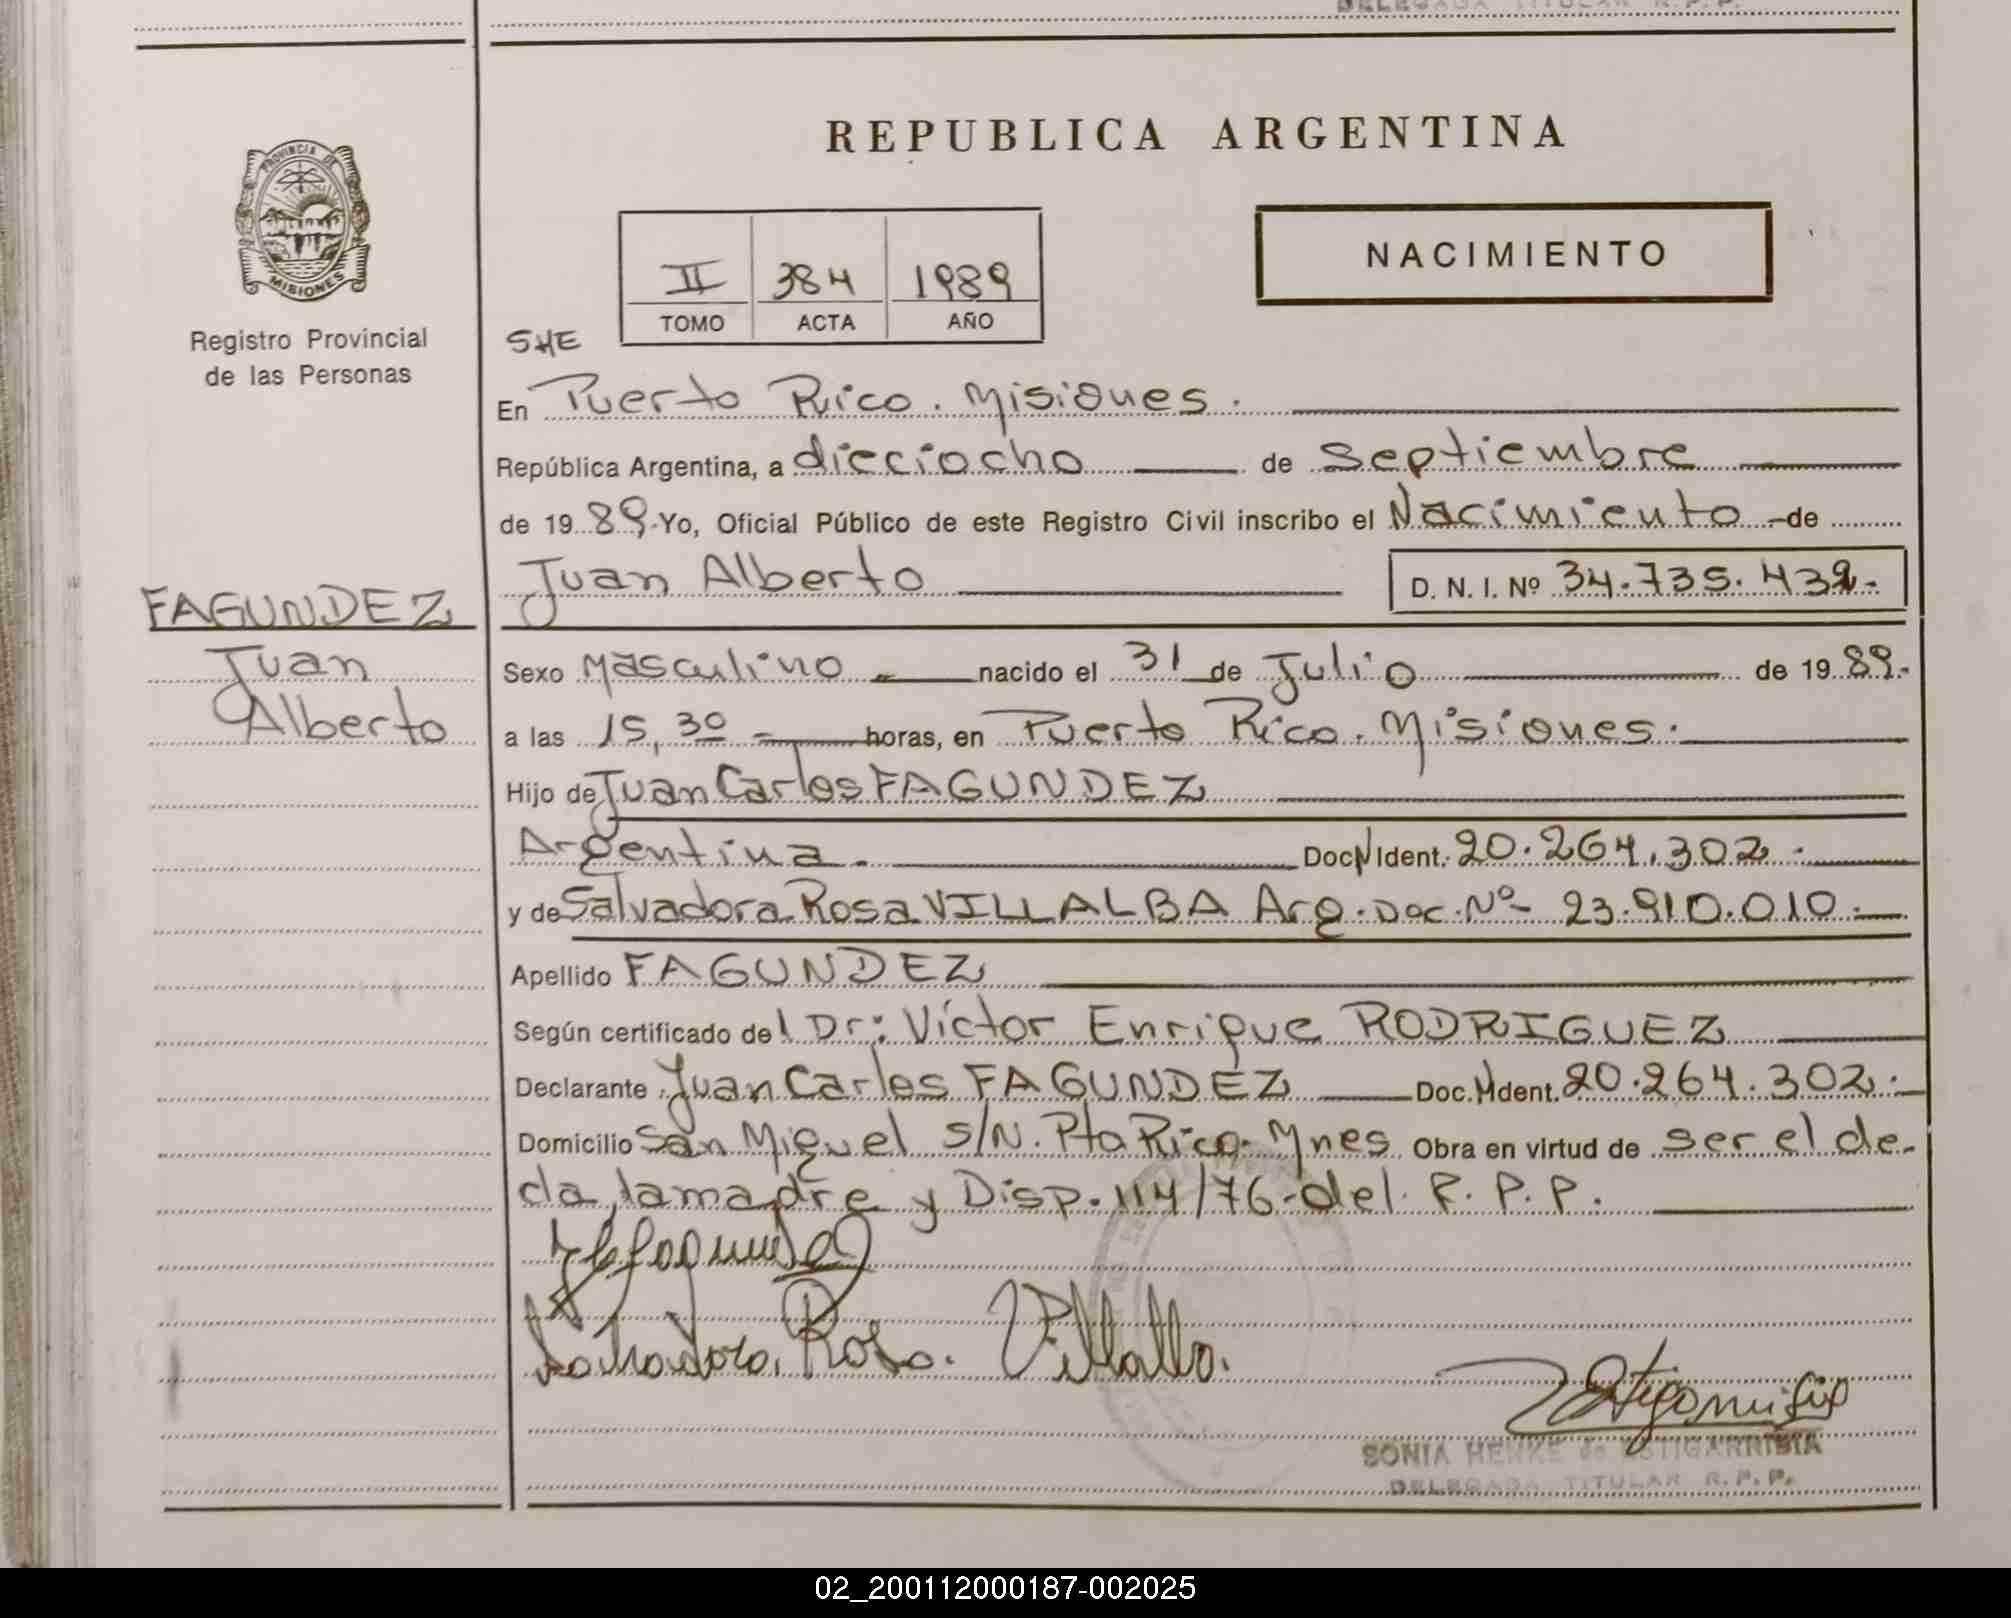 DELEGADA TITULAR R.P.P.
PROVINCIA DE
MISIONES
Registro Provincial
de las Personas
REPUBLICA ARGENTINA
NACIMIENTO
II 384 1989
TOMO ACTA AÑO
SHE
En Puerto Rico. Misiones.
República Argentina, a dieciocho de Septiembre
de 1989.Yo, Oficial Público de este Registro Civil inscribo el Nacimiento de
FAGUNDEZ
Juan
Alberto
Juan Alberto D. N. I. Nº 34.735.432.
Sexo Masculino nacido el 31 de Julio de 1989.
a las 15,30 horas, en Puerto Rico. Misiones.
Hijo de Juan Carlos FAGUNDEZ
Argentina. Doc.N Ident. 20.264.302.
y de Salvadora Rosa VILLALBA Arg. Doc. Nº 23.910.010.
Apellido FAGUNDEZ
Según certificado del Dr: Víctor Enrique RODRIGUEZ
Declarante Juan Carlos FAGUNDEZ Doc.N Ident. 20.264.302.
Domicilio San Miguel S/N. Pto Rico. Mnes Obra en virtud de ser el de-
da, la madre y Disp. 114/76. del R. P. P.
Salvadora Rosa Villalba.
SONIA HENKE de ESTIGARRIBIA
DELEGADA TITULAR R.P.P.
02_200112000187-002025